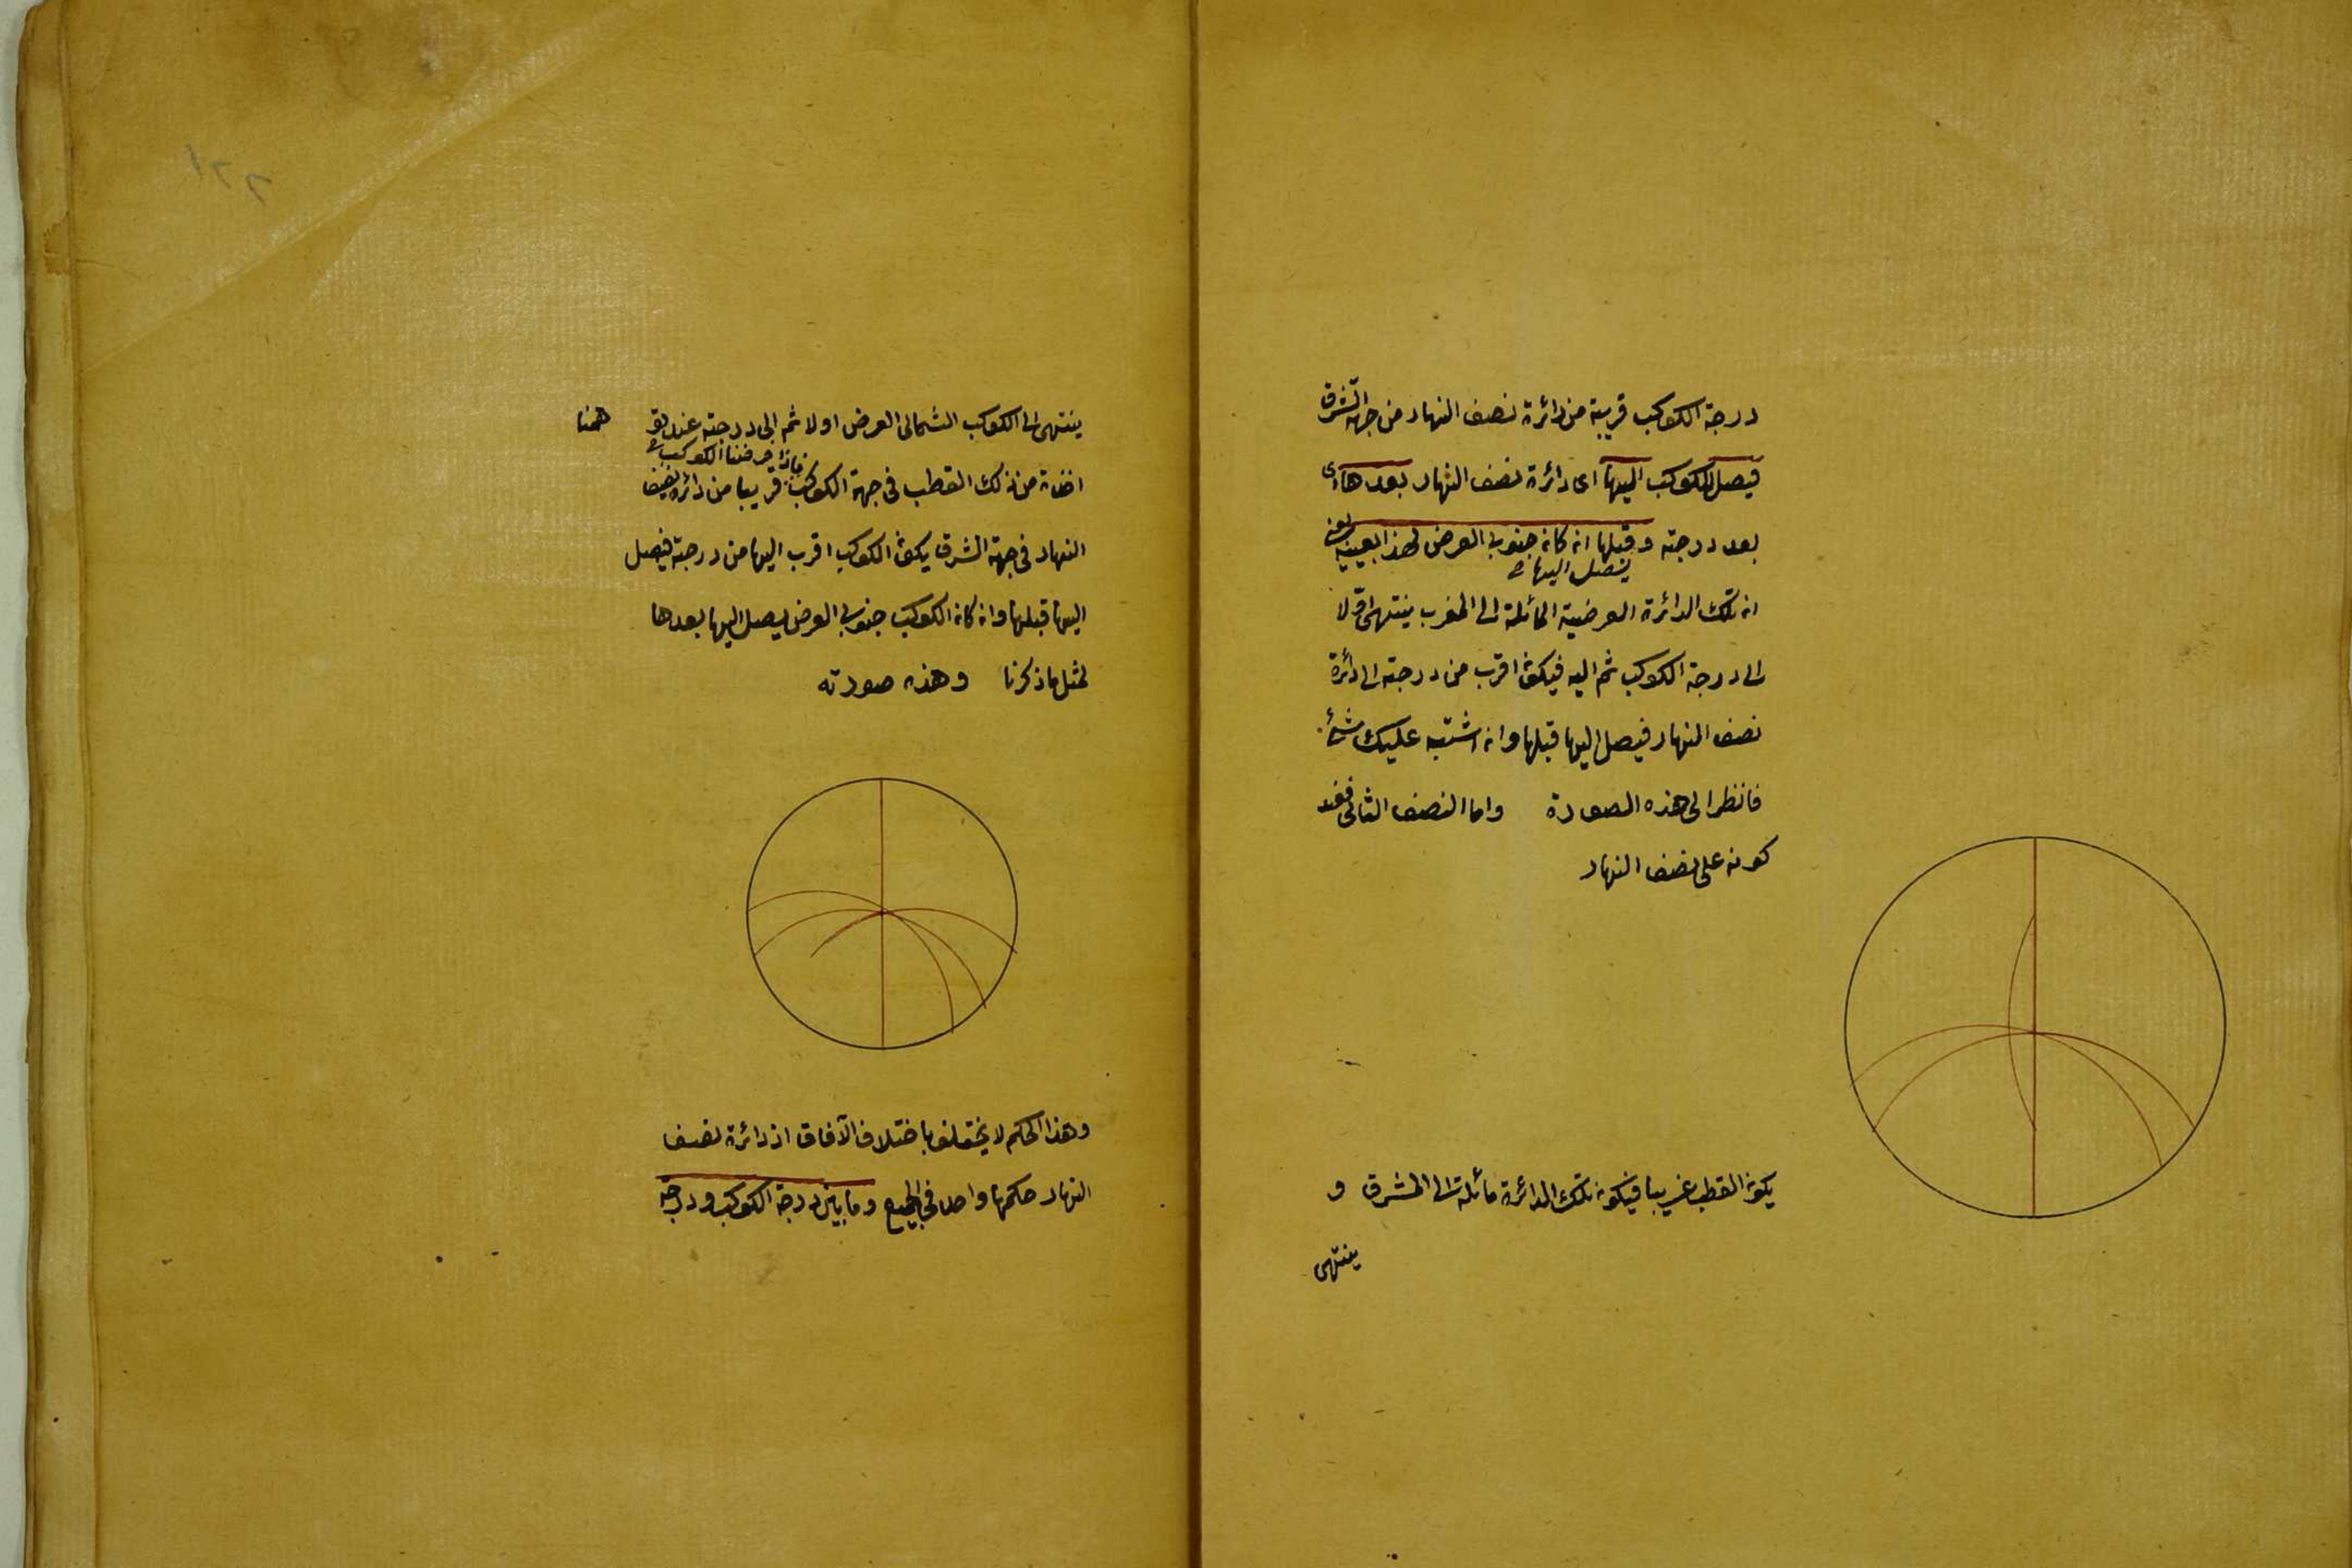 درجة الكوكب قريبة من دائرة نصف النهار من جهة الشرق
فيصل الكوكب اليها اى دائرة نصف النهار بعدها اى
بعد درجته وقبلها ان كان جنوبى العرض لهذا بعينه يعنى
يصل اليها
ان تلك الدائرة العرضية المائلة الى المغرب ينتهى اولا
الى درجة الكوكب ثم اليه فيكون اقرب من درجته الى دائرة
نصف النهار فيصل اليها قبلها وان اشتبه عليك شئ
فانظر الى هذه الصورة واما النصف الثانى فعند
كونه على نصف النهار
يكون القطب غربيا فيكون تلك الدائرة مائلة الى المشرق و
ينتهى
٢٢١
ينتهى الى الكوكب الشمالى العرض اولا ثم الى درجته عند
ههنا
فاذا فرضنا الكوكب
من ذلك القطب فى جهة الكوكب قريبا من دائرة نصف
النهار فى جهة الشرق يكون الكوكب اقرب اليها من درجته فيصل
اليها قبلها وان كان الكوكب جنوبى العرض يصل اليها بعدها
لمثل ما ذكرنا وهذه صورته
وهذا الحكم لا يختلف باختلاف الآفاق اذ دائرة نصف
النهار حكمها واحد فى الجميع وما بين درجة الكوكب ودرجة